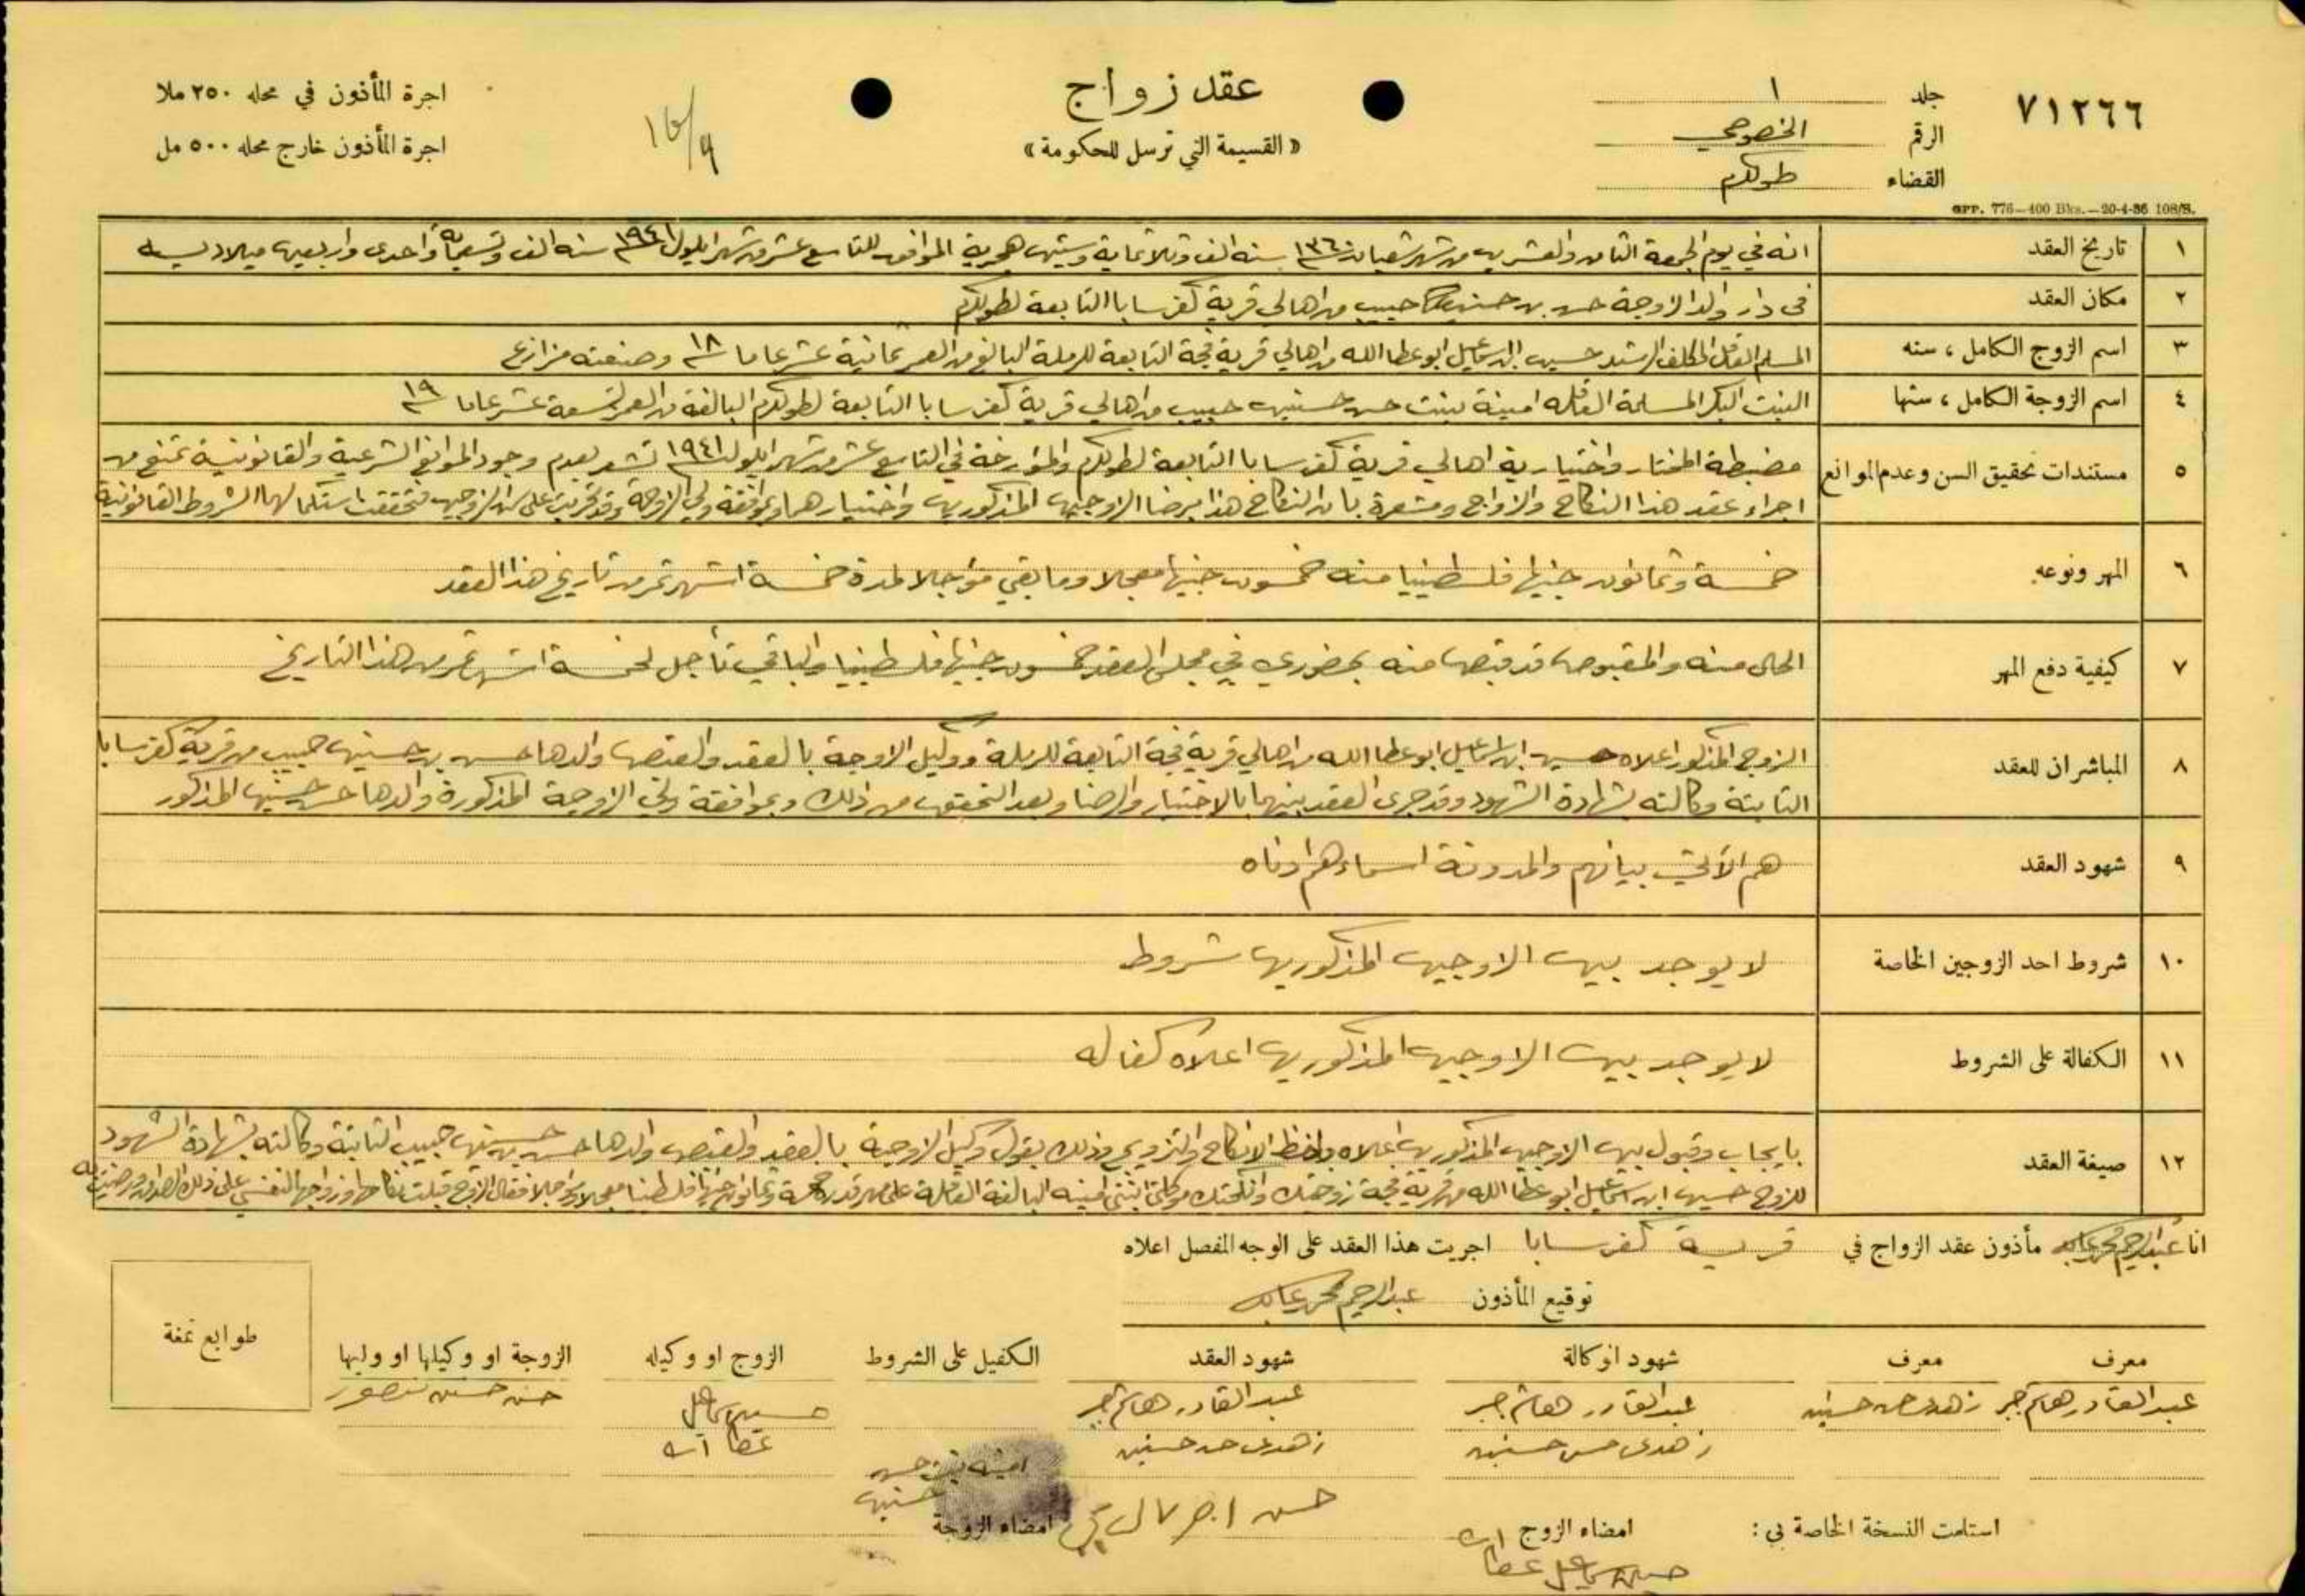 ٧١٢٦٦
جلد ١
الرقم الخصوصي
القضاء طولكرم
GPP. 776—400 Bks.—20-4-36 108/S.
عقد زواج
« القسيمة التي ترسل للحكومة »
اجرة المأذون في محله ٢٥٠ ملا
اجرة المأذون خارج محله ٥٠٠ مل
١ تاريخ العقد انه في يوم الجمعة الثامن والعشرين من شهر شعبان سنة ١٣٦٠ سنه الف وثلاثماية وستين هجرية الموافق للتاسع عشر من شهر ايلول ١٩٤١ سنه الف وتسعماية واحدى واربعين ميلاديه
٢ مكان العقد في دار والد الزوجة حسن بن حسنين حبيب من اهالي قرية كفرسابا التابعة لطولكرم
٣ اسم الزوج الكامل ، سنه المسلم العاقل المكلف الرشيد حسين ابن اسماعيل ابو عطا الله من اهالي قرية فجة التابعة للرملة البالغ من العمر ثمانية عشر عاما ١٨ وصنعته مزارع
٤ اسم الزوجة الكامل ، سنها البنت البكر المسلمة العاقله امينة بنت حسن حسنين حبيب من اهالي قرية كفرسابا التابعة لطولكرم البالغة من العمر تسعة عشر عاما ١٩
٥ مستندات تحقيق السن وعدم الموانع مضبطة المختار واختيارية اهالي قرية كفرسابا التابعة لطولكرم والمؤرخة في التاسع عشر من شهر ايلول ١٩٤١ تشعر بعدم وجود الموانع الشرعية والقانونية تمنع من
اجراء عقد هذا النكاح والزواج ومشعرة بان النكاح هذا برضا الزوجين المذكورين واختيارهما وبموافقة ولي الزوجة وقد سن الزوجين فتحققت استكمالهما الشروط القانونية
٦ المهر ونوعه خمسة وثمانون جنيها فلسطينيا منه خمسون جنيها معجلا وما بقي مؤجلا لمدة خمسة اشهر تمر من تاريخ هذا العقد
٧ كيفية دفع المهر الحال منه والمقبوض قد قبض منه بحضوري في مجلس العقد خمسون جنيها فلسطينيا والباقي تأجل لخمسة اشهر تمر من هذا التاريخ
٨ المباشران للعقد الزوج المذكور اعلاه حسين ابن اسماعيل ابو عطا الله من اهالي قرية فجة التابعة للرملة ووكيل الزوجة بالعقد والقبض والدها حسن بن حسنين حبيب من قرية كفرسابا
الثابتة وكالته بشهادة الشهود وقد جرى العقد بينهما بالاختيار والرضا وبعد التحقق من ذلك وبموافقة ولي الزوجة المذكورة والدها حسن حسنين المذكور
٩ شهود العقد هم الآتي بيانهم والمدونة اسماءهم ادناه
١٠ شروط احد الزوجين الخاصة لا يوجد بين الزوجين المذكورين شروط
١١ الكفالة على الشروط لا يوجد بين الزوجين المذكورين اعلاه كفاله
١٢ صيغة العقد بايجاب وقبول بين الزوجين المذكورين اعلاه بلفظ الانكاح والتزويج وذلك بقول وكيل الزوجة بالعقد والقبض والدها حسن بن حسنين حبيب الثابتة وكالته بشهادة الشهود
للزوج حسين ابن اسماعيل ابو عطا الله من قرية فجة زوجتك وانكحتك موكلتي ابنتي امينه البالغة العاقلة على مهر قدره خمسة وثمانون جنيها فلسطينيا معجلا ومؤجلا فقال الزوج قبلت نكاحها وزواجها لنفسي على ذلك
انا عبد الرحيم محمد مأذون عقد الزواج في قرية كفرسابا اجريت هذا العقد على الوجه المفصل اعلاه
توقيع المأذون عبد الرحيم محمد
معرف معرف شهود الوكالة شهود العقد الكفيل على الشروط الزوج او وكيله الزوجة او وكيلها او وليها طوابع تمغة
عبد القادر هاشم جبر زهدي حسن حسنين عبد القادر هاشم جبر عبد القادر هاشم جبر حسين اسماعيل حسن حسنين منصور
زهدي حسن حسنين زهدي حسن حسنين عطا الله
امينه بنت حسن
حسنين
استلمت النسخة الخاصة بي : امضاء الزوج امضاء الزوجة
حسين اسماعيل عطا الله